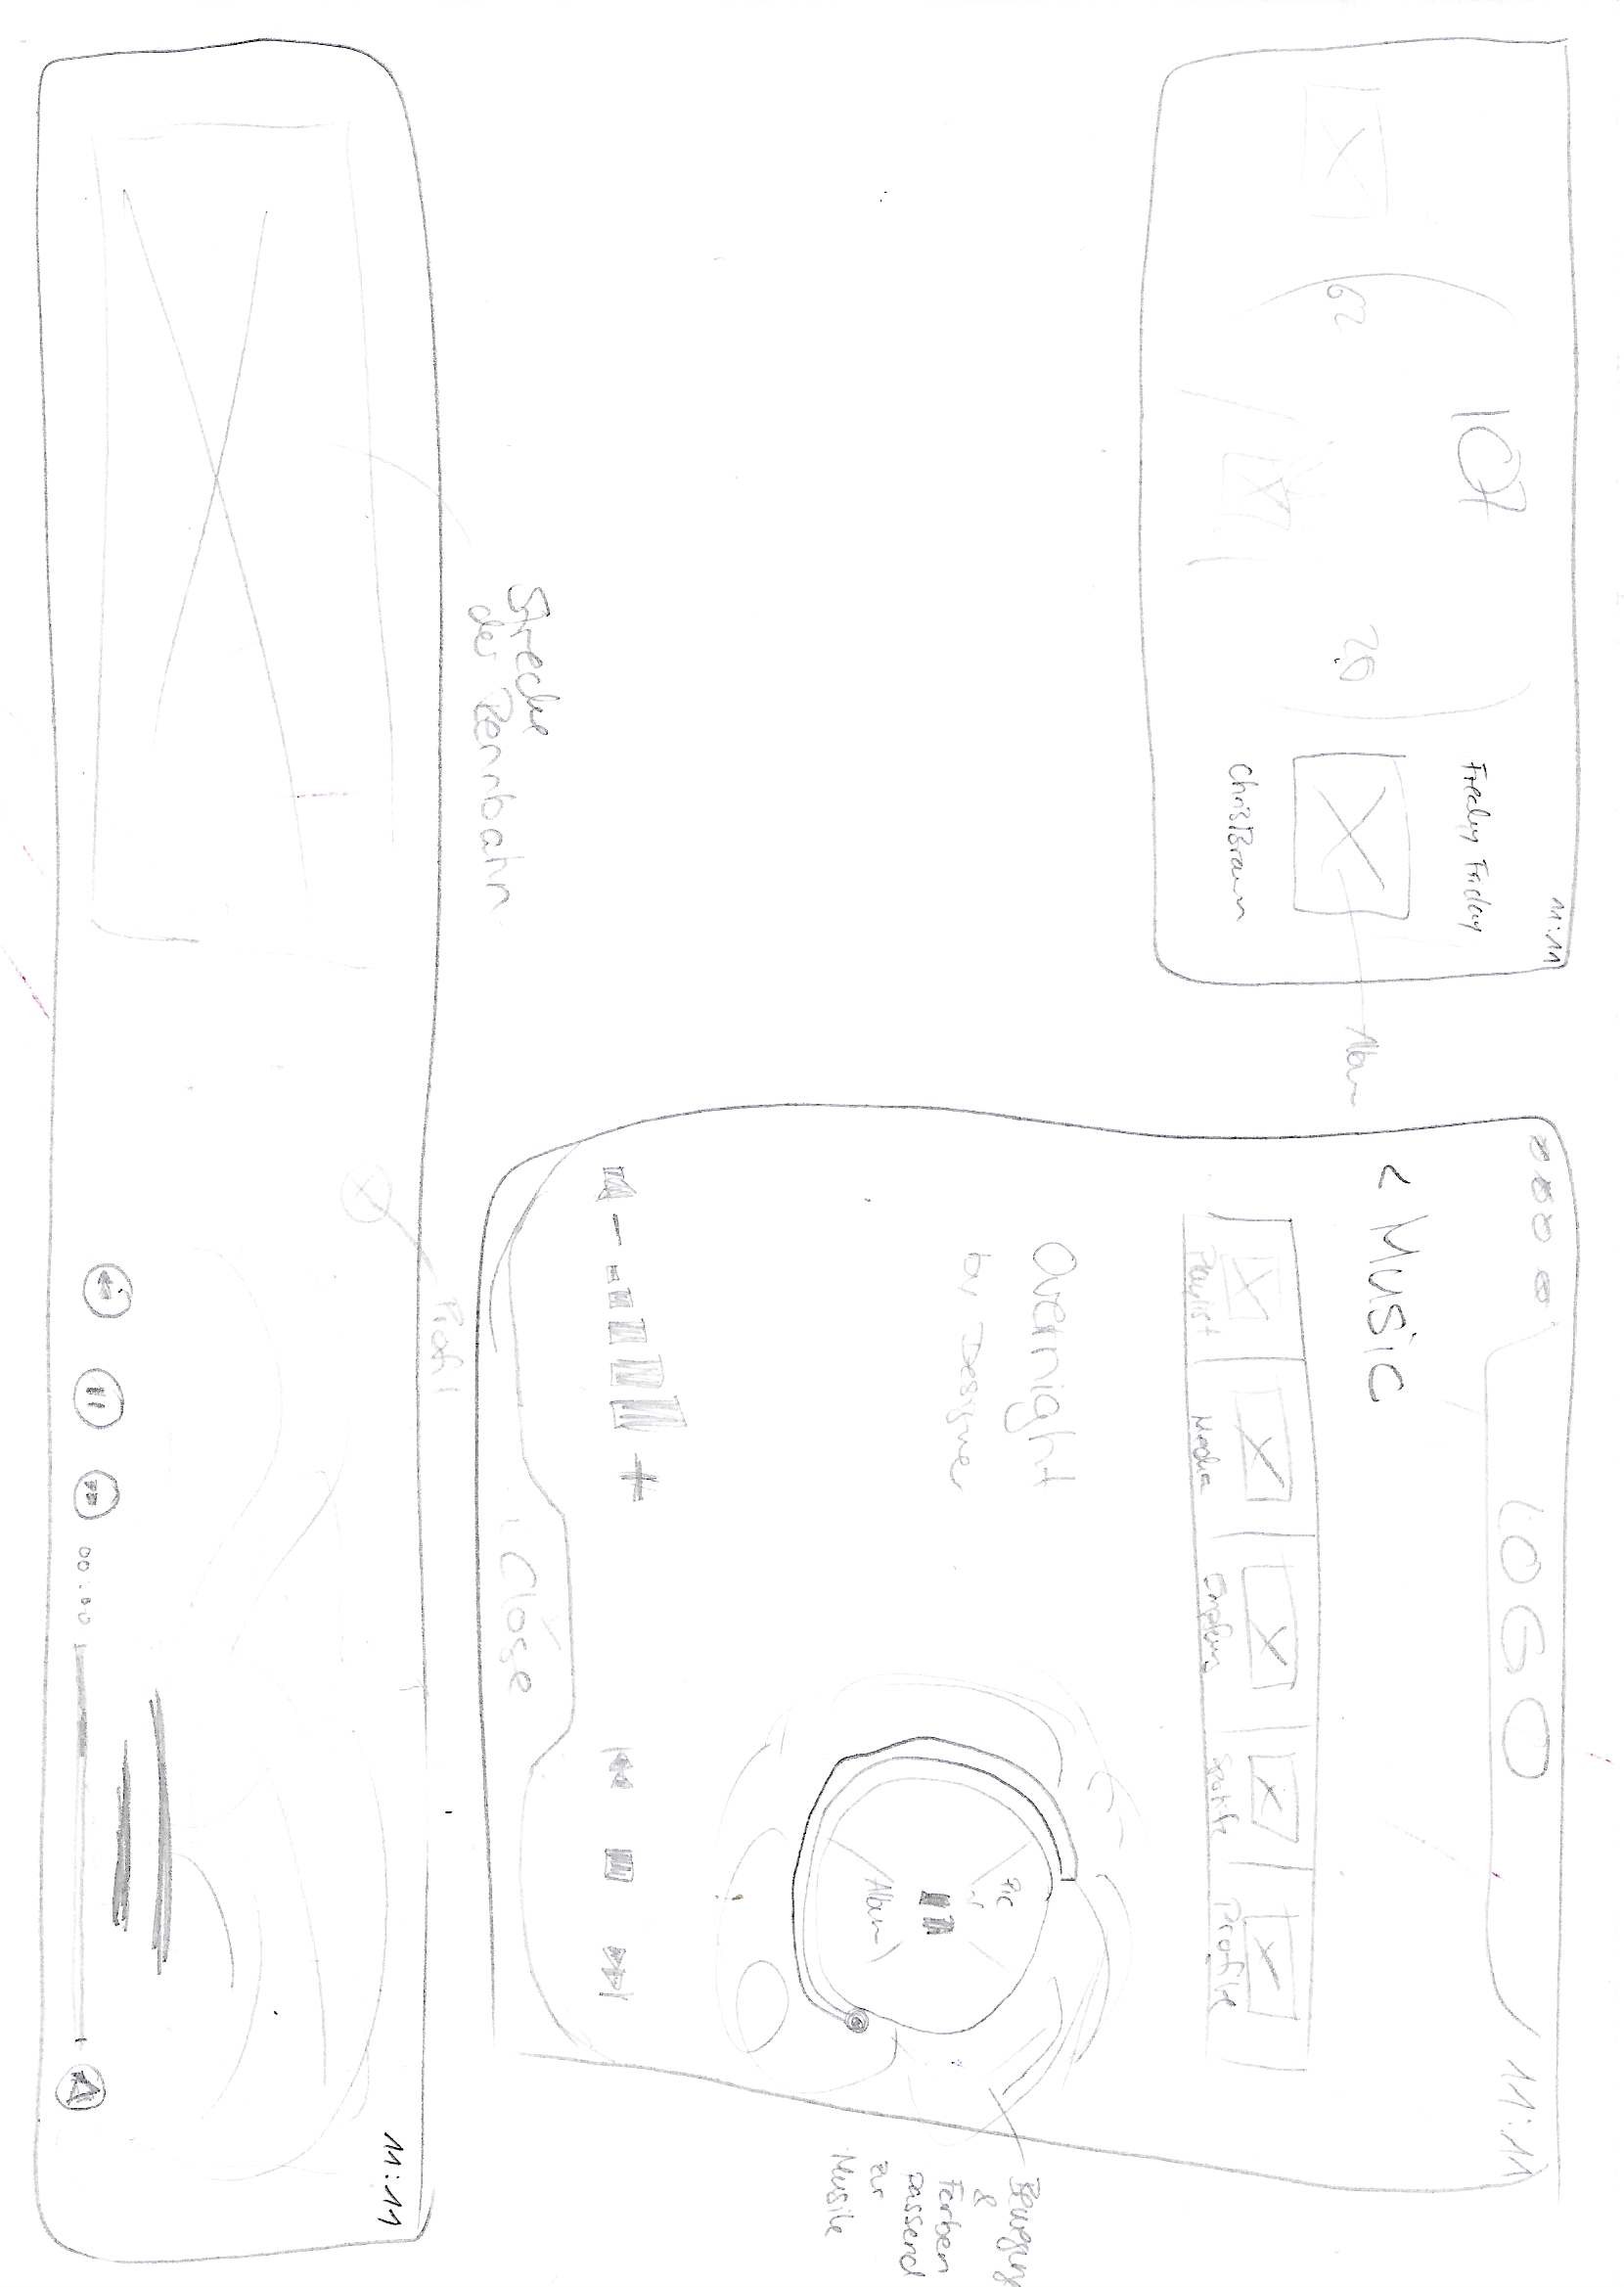 11:11
107
Freaky Friday
62
20
Album
Chris Braun
LOGO
11:11
< Music
Playlist
Media
Empfang
Spotify
Profile
Overnight
by Designer
Pic
Album
Bewegung
&
Farben
passend
zur
Musik
- +
Close
Strecke
der Rennbahn
Profil
11:11
00:00